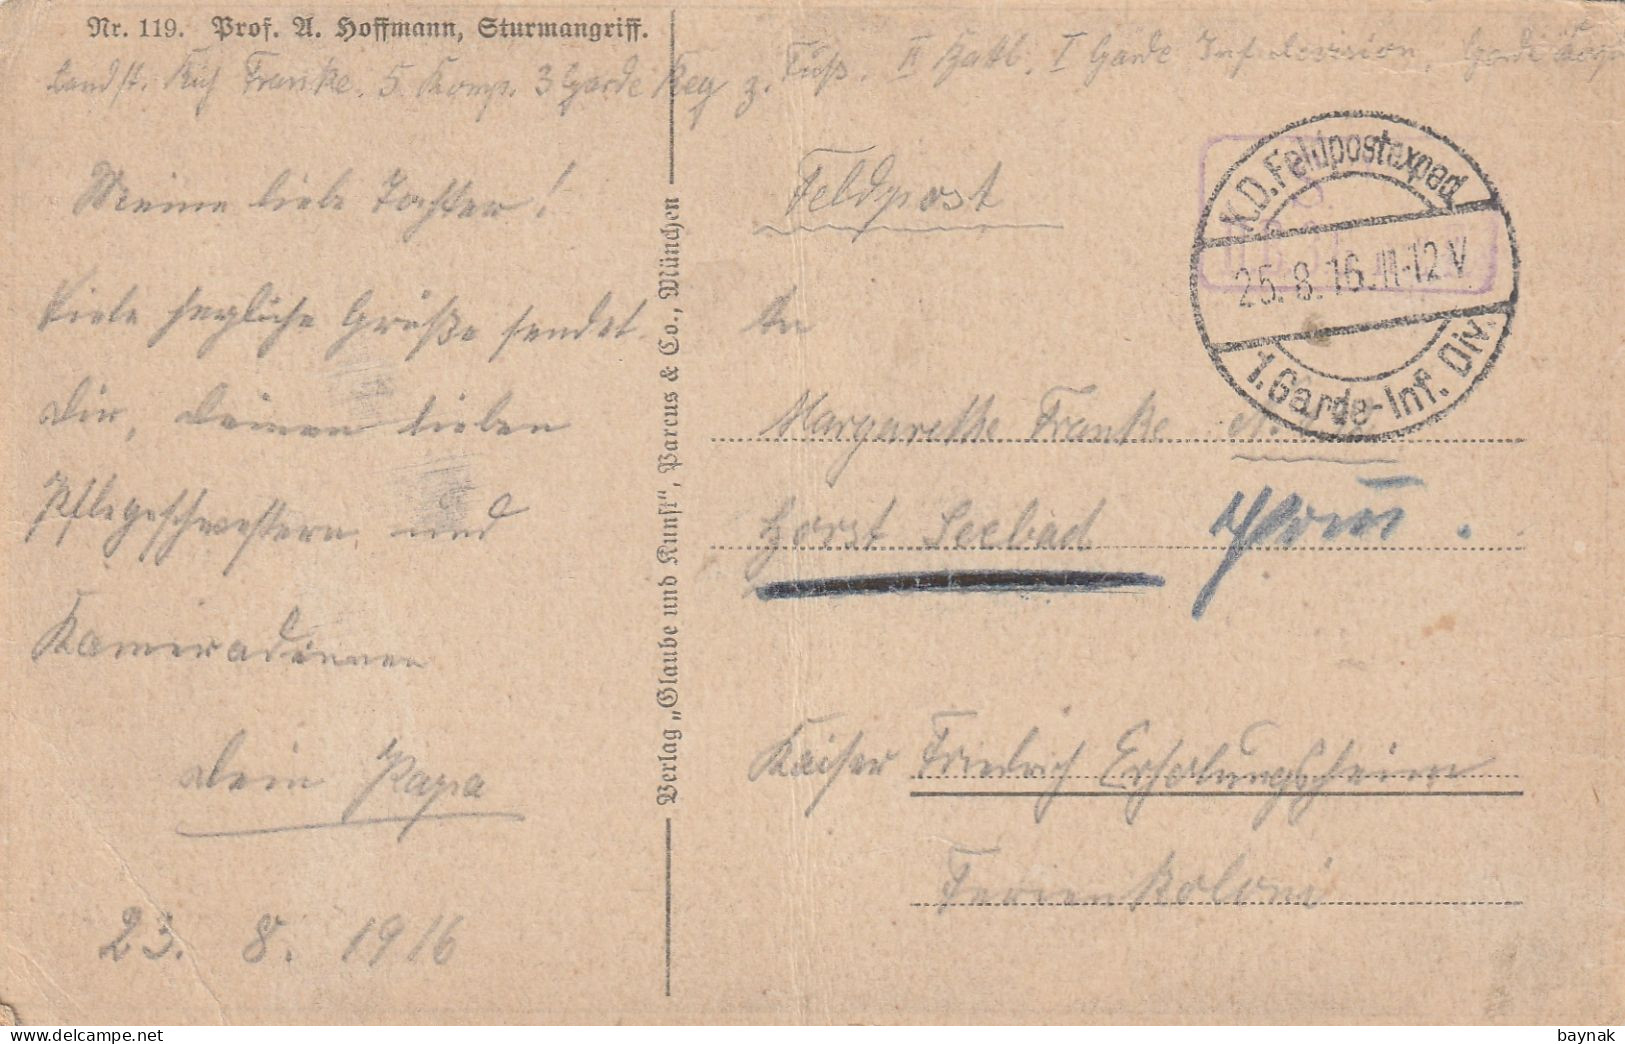 Nr. 119. Prof. A. Hoffmann, Sturmangriff.
Landst. Rich Franke. 5. Komp. 3 Garde Reg z. Fuß. II Batl. I Garde Inf. devision, Garde Korp
Meine liebe Tochter!
Viele herzliche Grüße sendet
Dir, Deinen lieben
Pflegeschwestern und
Kameradinnen
Dein Papa
23. 8. 1916
Verlag „Glaube und Kunst“, Parcus & Co., München
Feldpost
K.D. Feldpostexped.
25. 8. 16. 11-12 V
1. Garde-Inf. Div.
An
Margarethe Franke
Horst Seebad Pom.
Kaiser Friedrich Erholungsheim
Ferienkoloni
baynak